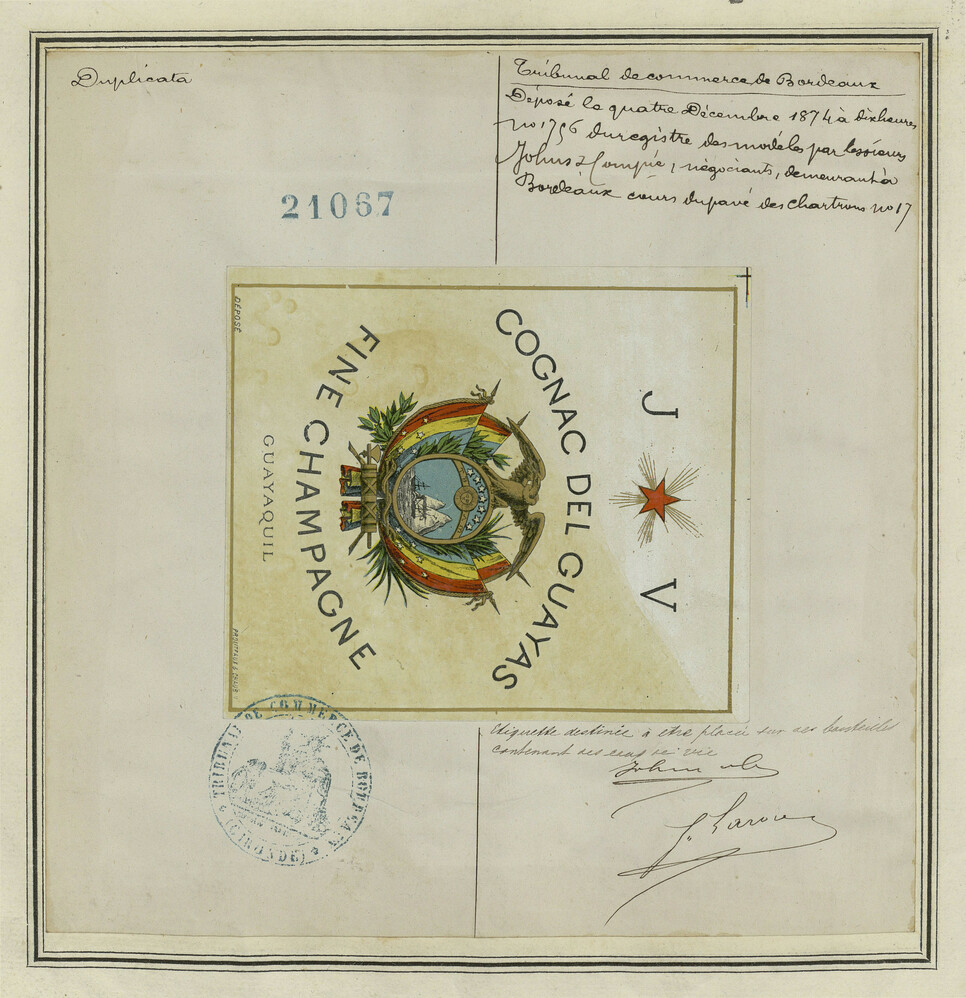 Duplicata
Tribunal de commerce de Bordeaux
Déposé le quatre Décembre 1874 à dix heures
no 1756 du registre des modèles par les sieurs
Johns & Compie, négociants, demeurant à
Bordeaux cours du pavé des Chartrons no 17
21067
J V
COGNAC DEL GUAYAS
FINE CHAMPAGNE
GUAYAQUIL
DÉPOSÉ
TRIBUNAL DE COMMERCE DE BORDEAUX
(GIRONDE)
Etiquette destinée à etre placée sur des bouteilles
contenant des eaux de vie